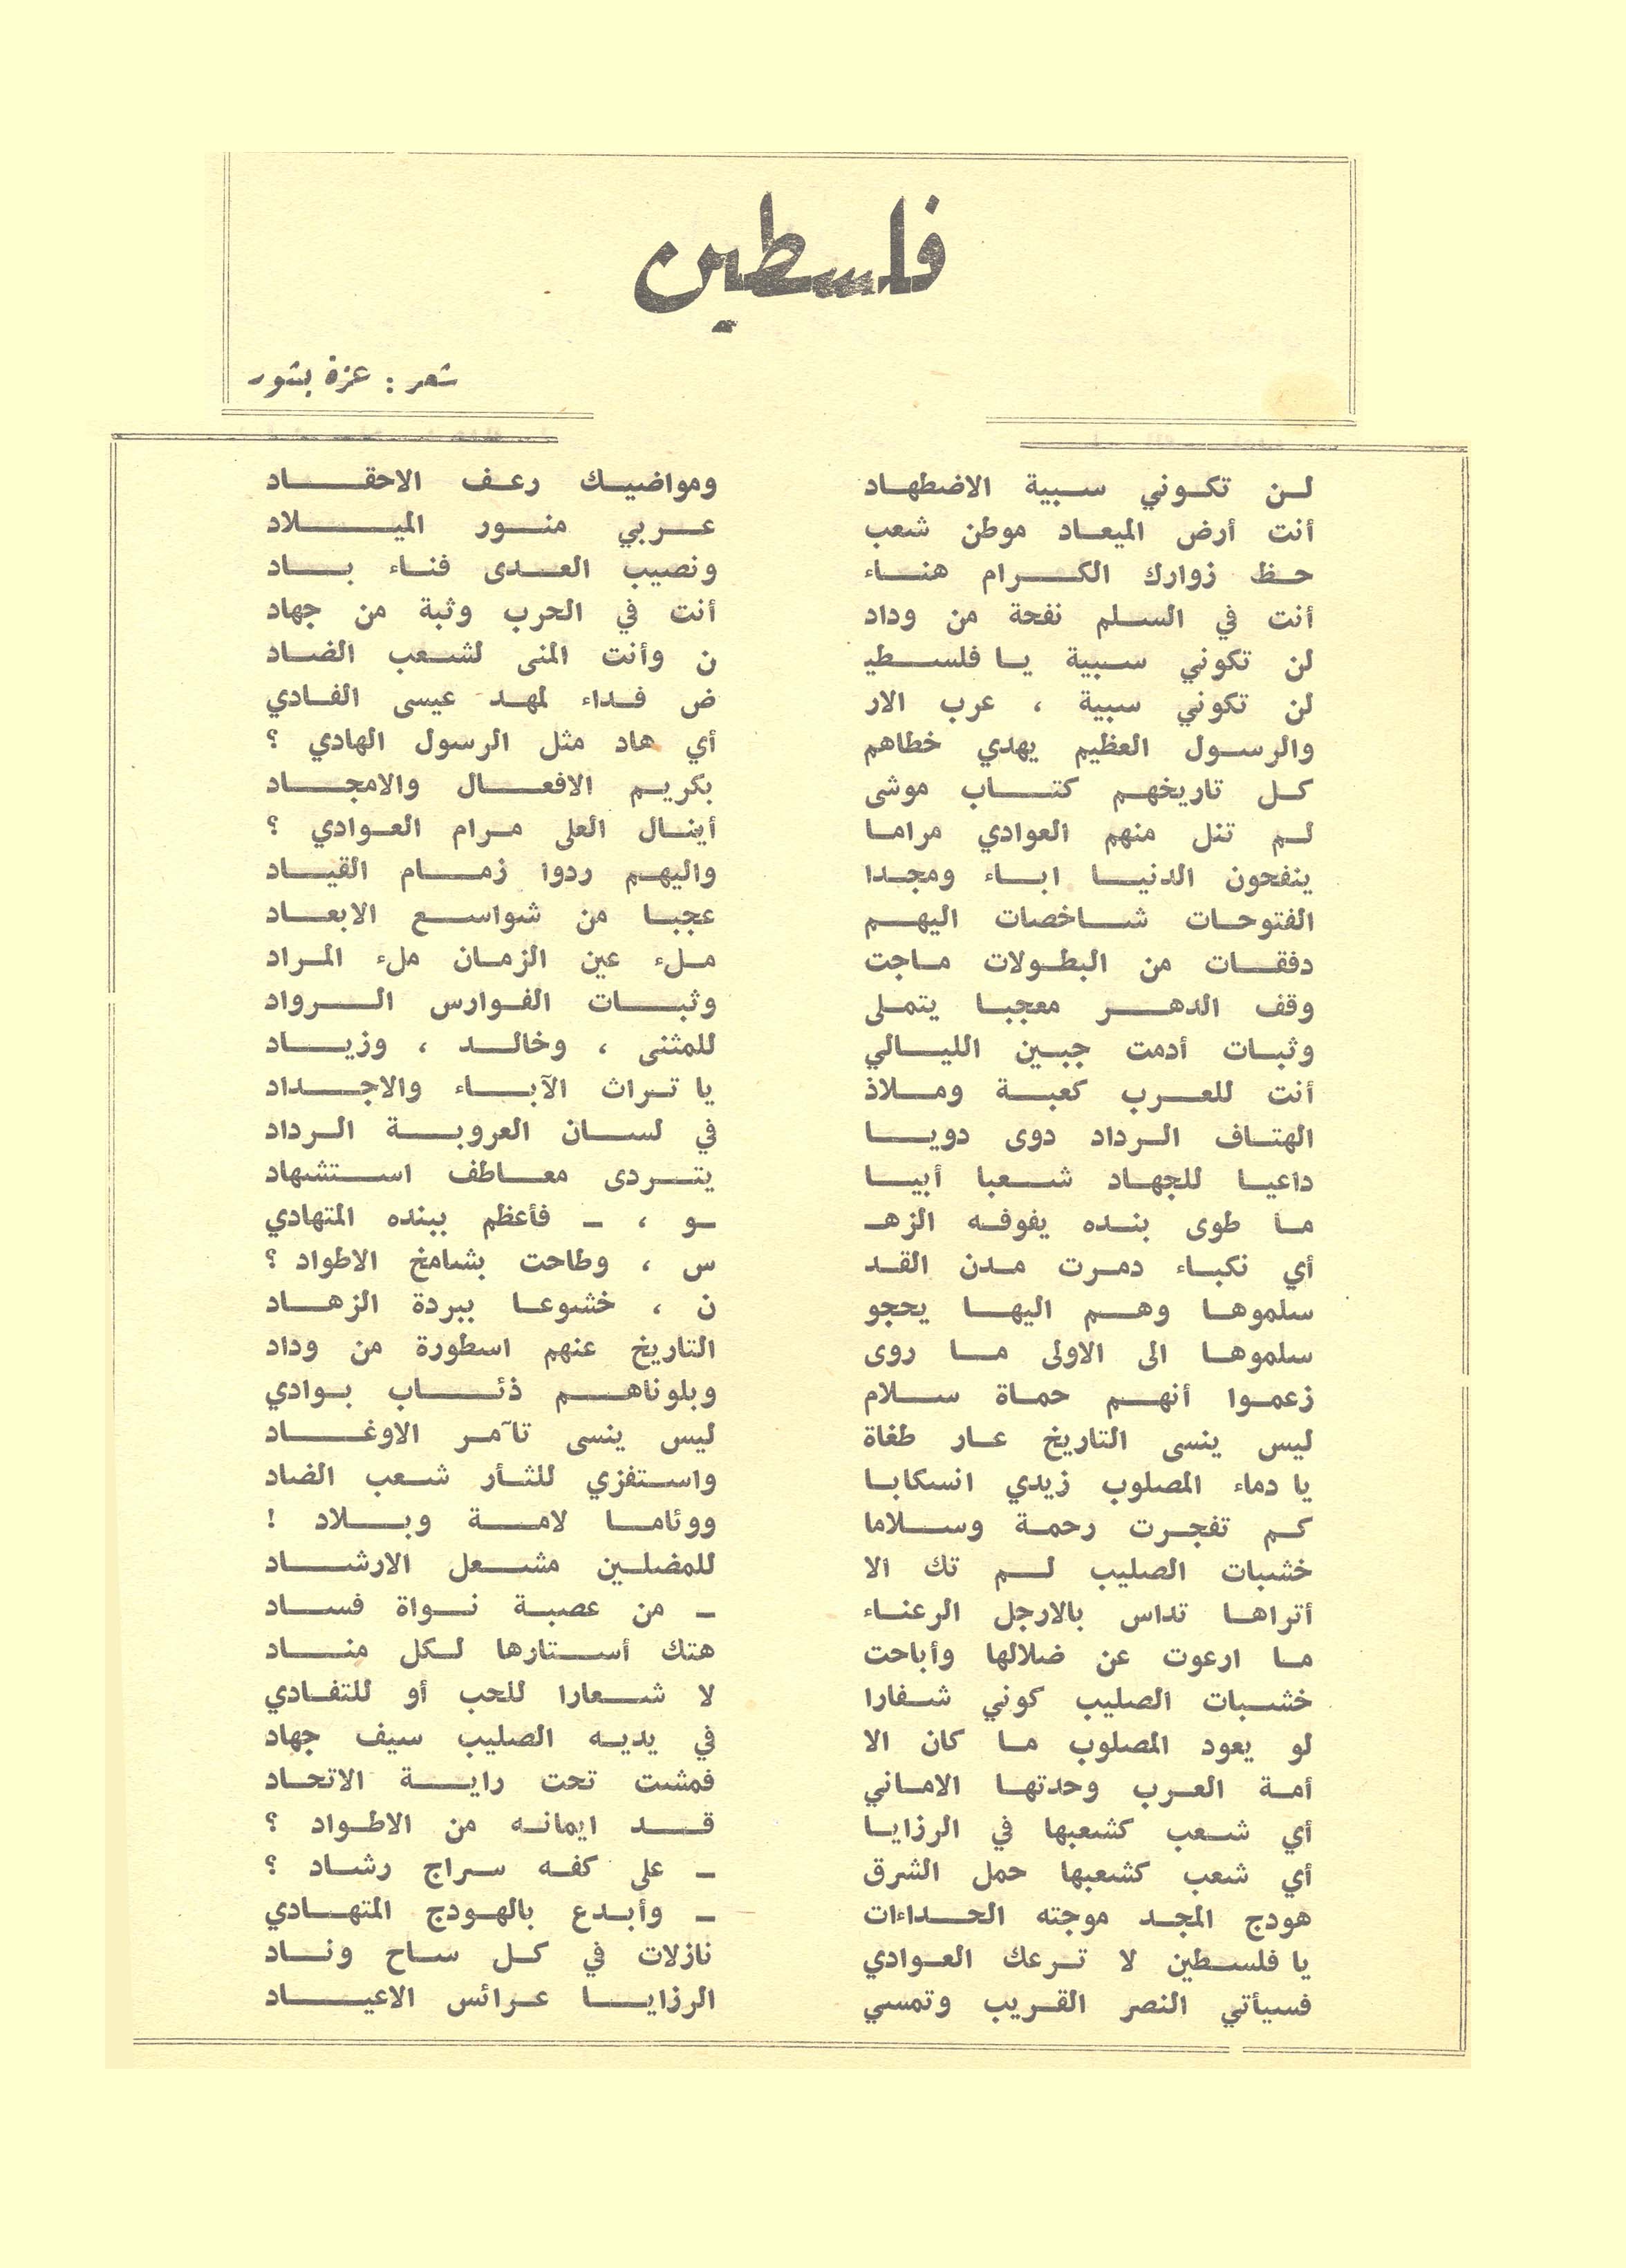 فلسطين
شعر : عزة بشور
لن تكوني سبية الاضطهاد ومواضيك رعف الاحقاد
أنت أرض الميعاد موطن شعب عربي منور الميلاد
حظ زوارك الكرام هناء ونصيب العدى فناء باد
أنت في السلم نفحة من وداد أنت في الحرب وثبة من جهاد
لن تكوني سبية يا فلسطيـ ن وأنت المنى لشعب الضاد
لن تكوني سبية ، عرب الار ض فداء لمهد عيسى الفادي
والرسول العظيم يهدي خطاهم أي هاد مثل الرسول الهادي ؟
كل تاريخهم كتاب موشى بكريم الافعال والامجاد
لم تنل منهم العوادي مراما أينال العلى مرام العوادي ؟
ينفحون الدنيا اباء ومجدا واليهم ردوا زمام القياد
الفتوحات شاخصات اليهم عجبا من شواسع الابعاد
دفقات من البطولات ماجت ملء عين الزمان ملء المراد
وقف الدهر معجبا يتملى وثبات الفوارس الرواد
وثبات أدمت جبين الليالي للمثنى ، وخالد ، وزياد
أنت للعرب كعبة وملاذ يا تراث الآباء والاجداد
الهتاف الرداد دوى دويا في لسان العروبة الرداد
داعيا للجهاد شعبا أبيا يتردى معاطف استشهاد
ما طوى بنده يفوفه الزهـ ـو ، ـ فأعظم ببنده المتهادي
أي نكباء دمرت مدن القد س ، وطاحت بشامخ الاطواد ؟
سلموها وهم اليها يحجو ن ، خشوعا ببردة الزهاد
سلموها الى الاولى ما روى التاريخ عنهم اسطورة من وداد
زعموا أنهم حماة سلام وبلوناهم ذئاب بوادي
ليس ينسى التاريخ عار طغاة ليس ينسى تآمر الاوغاد
يا دماء المصلوب زيدي انسكابا واستفزي للثأر شعب الضاد
كم تفجرت رحمة وسلاما ووئاما لامة وبلاد !
خشبات الصليب لم تك الا للمضلين مشعل الارشاد
أتراها تداس بالارجل الرعناء ـ من عصبة نواة فساد
ما ارعوت عن ضلالها وأباحت هتك أستارها لكل مناد
خشبات الصليب كوني شفارا لا شعارا للحب أو للتفادي
لو يعود المصلوب ما كان الا في يديه الصليب سيف جهاد
أمة العرب وحدتها الاماني فمشت تحت راية الاتحاد
أي شعب كشعبها في الرزايا قد ايمانه من الاطواد ؟
أي شعب كشعبها حمل الشرق ـ على كفه سراج رشاد ؟
هودج المجد موجته الحداءات ـ وأبدع بالهودج المتهادي
يا فلسطين لا ترعك العوادي نازلات في كل ساح وناد
فسيأتي النصر القريب وتمسي الرزايا عرائس الاعياد